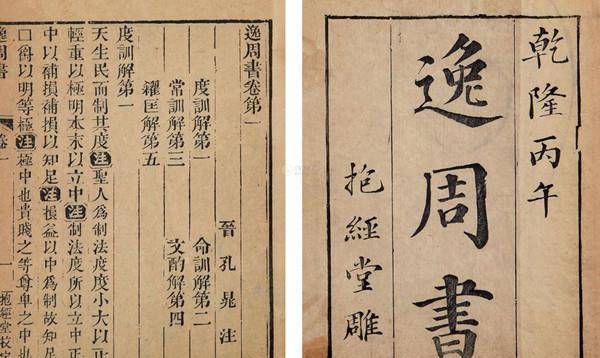 乾隆丙午
逸周書
抱經堂雕
逸周書卷第一
晉孔晁注
度訓解第一 命訓解第二
常訓解第三 文酌解第四
糴匡解第五
度訓解第一
天生民而制其度注聖人爲制法度度小大以正
輕重以極明本末以立中注制法度所以立中正
中以補損補損以知足注損益以中爲制故知足
□爵以明等極注極中也貴賤之等尊卑之中也
逸周書 卷一 一 抱經堂校